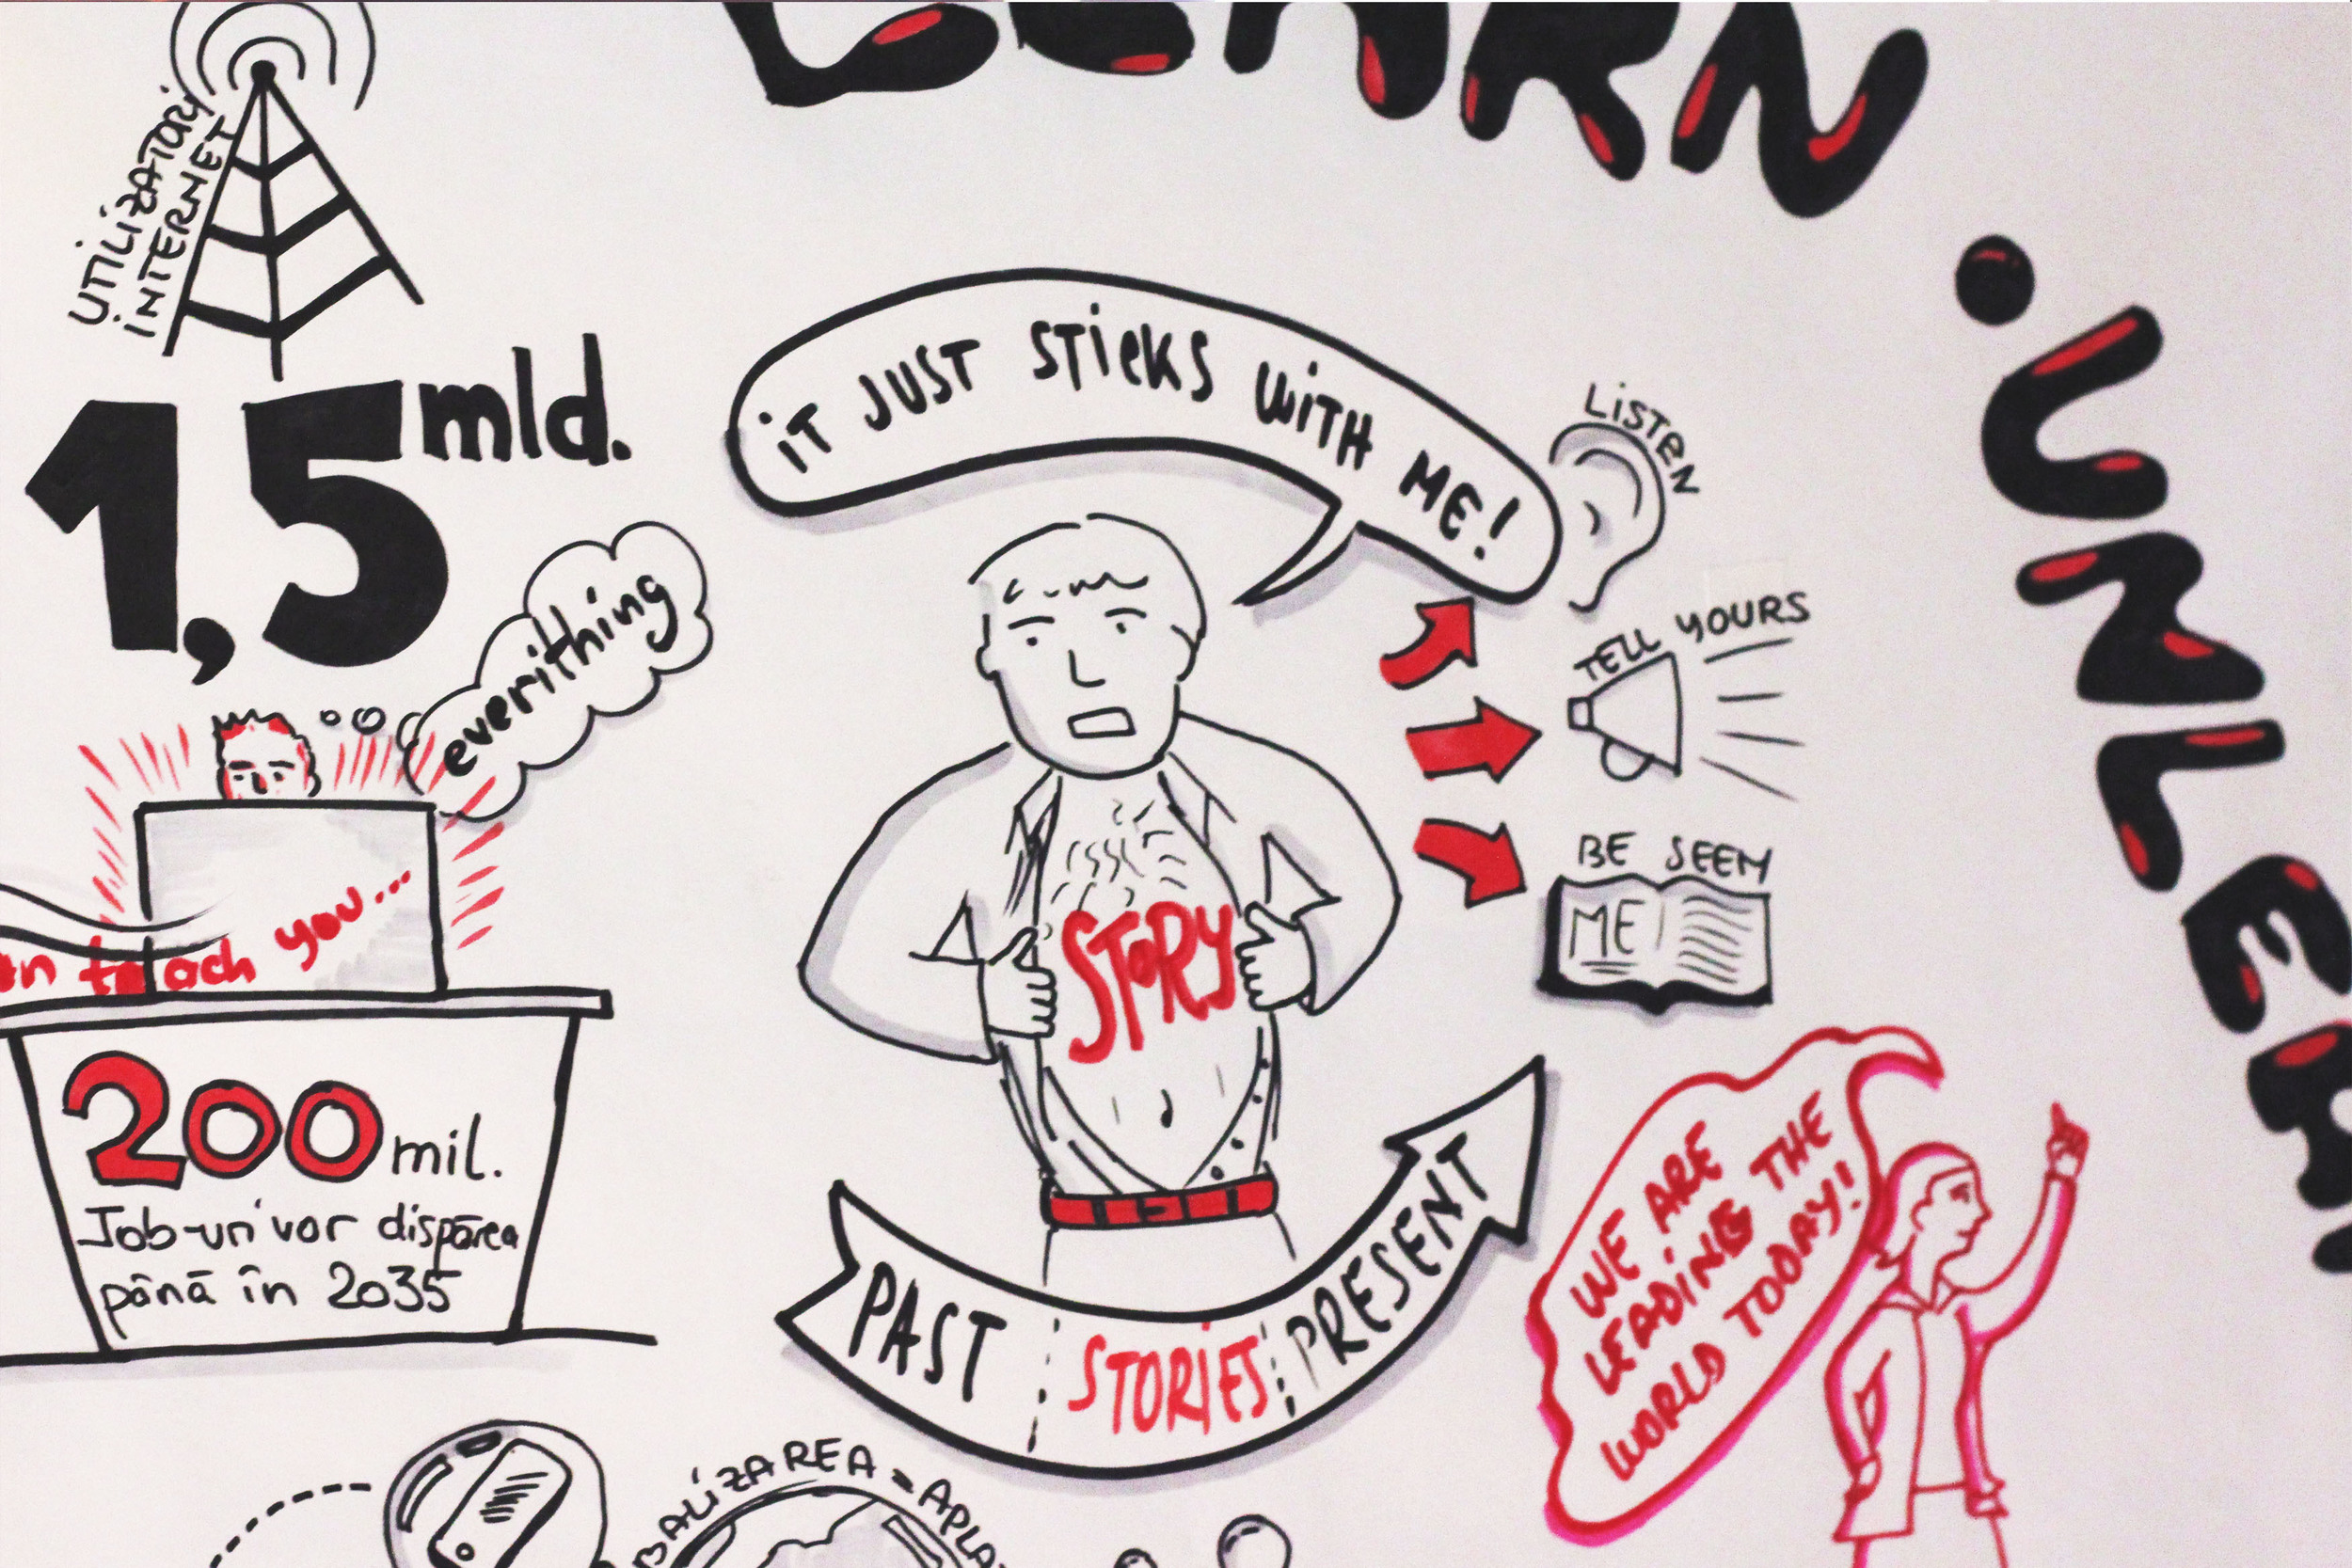 LEARN
. UNLEA
UTILIZATORI
INTERNET
1,5 mld.
IT JUST STICKS WITH ME!
LISTEN
TELL YOURS
BE SEEN
ME
everithing
teach you...
STORY
200 mil.
Job-uri vor dispărea
până în 2035
PAST STORIES PRESENT
WE ARE
LEADING THE
WORLD TODAY!
BALIZAREA = APLA